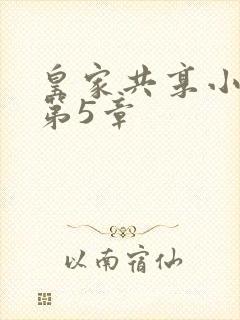 皇家共享小
第5章
以南宿仙